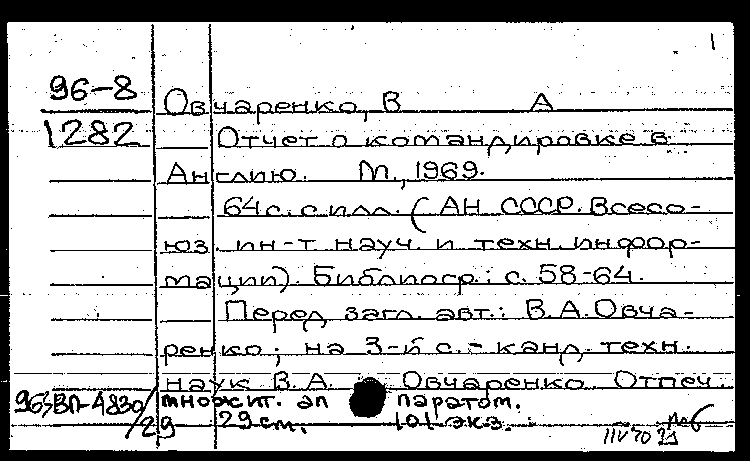 1
96-8
Овчаренко, В А
1282
Отчет о командировке в
Англию. М., 1969.
64 с. с илл. (АН СССР. Всесо-
юз. ин-т науч. и техн. инфор-
мации). Библиогр.: с. 58-64.
Перед загл. авт.: В.А. Овча-
ренко; на 3-й с. - канд. техн.
наук В.А. Овчаренко. Отпеч.
множит. ап паратом.
29 29 см. 101 экз.